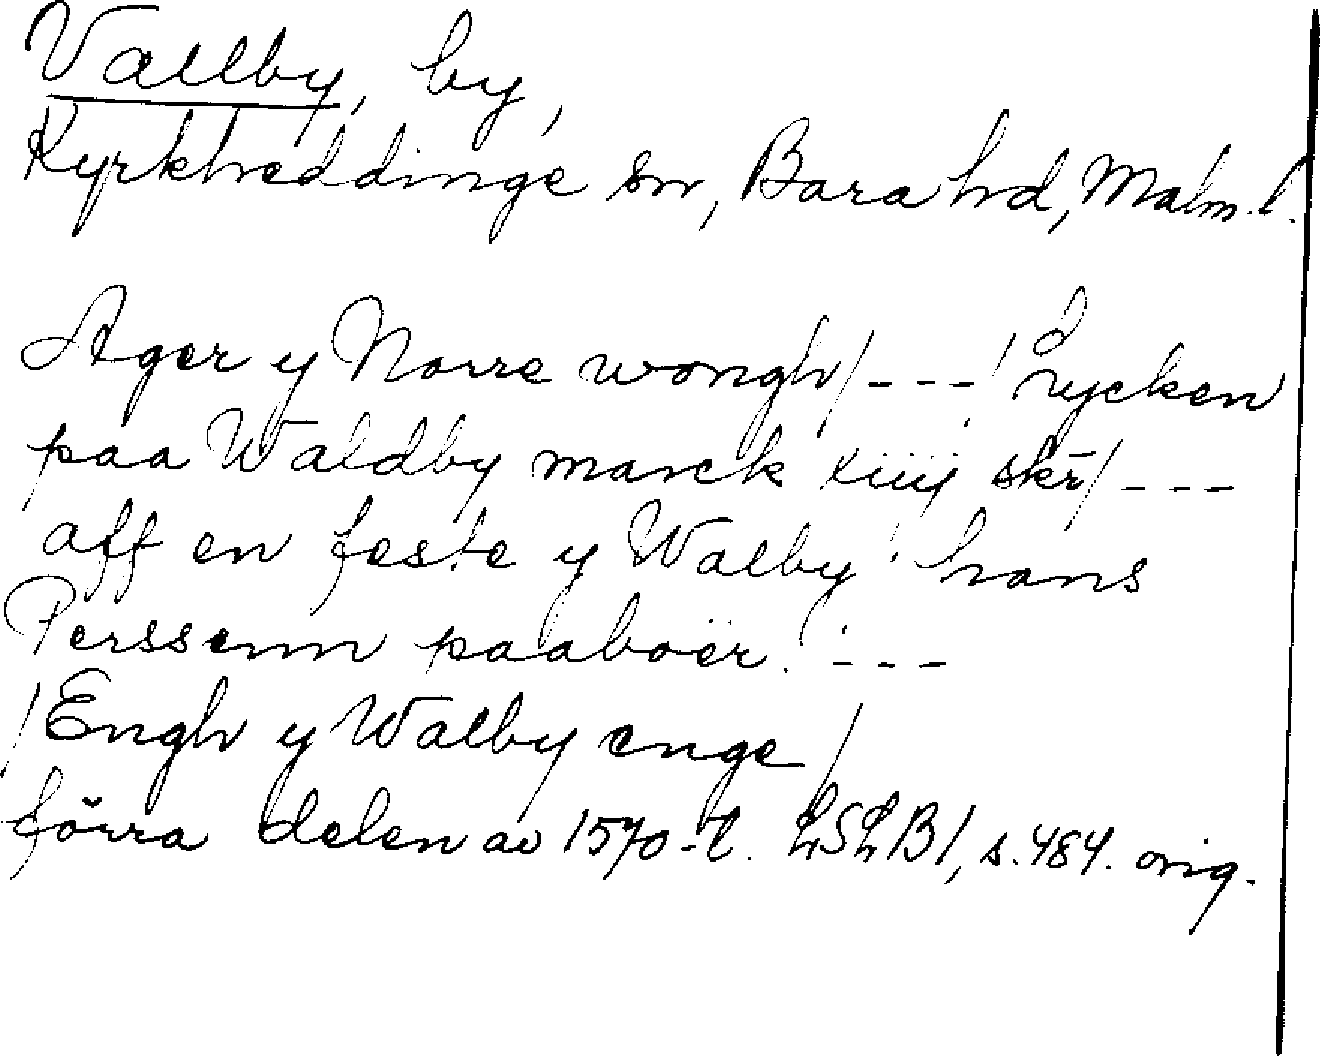 Vallby, by,
Kyrkheddinge sn, Bara hd, Malm. l.
Ager y Norre wongh/ - - - / Rycken
paa Waldby marck xiiij skr̄/ - - -
aff en feste y Walby hans
Perssenn paaboër. - - -
/Engh y Walby enge/
förra delen av 1570-t. LSLB1, s. 484. orig.